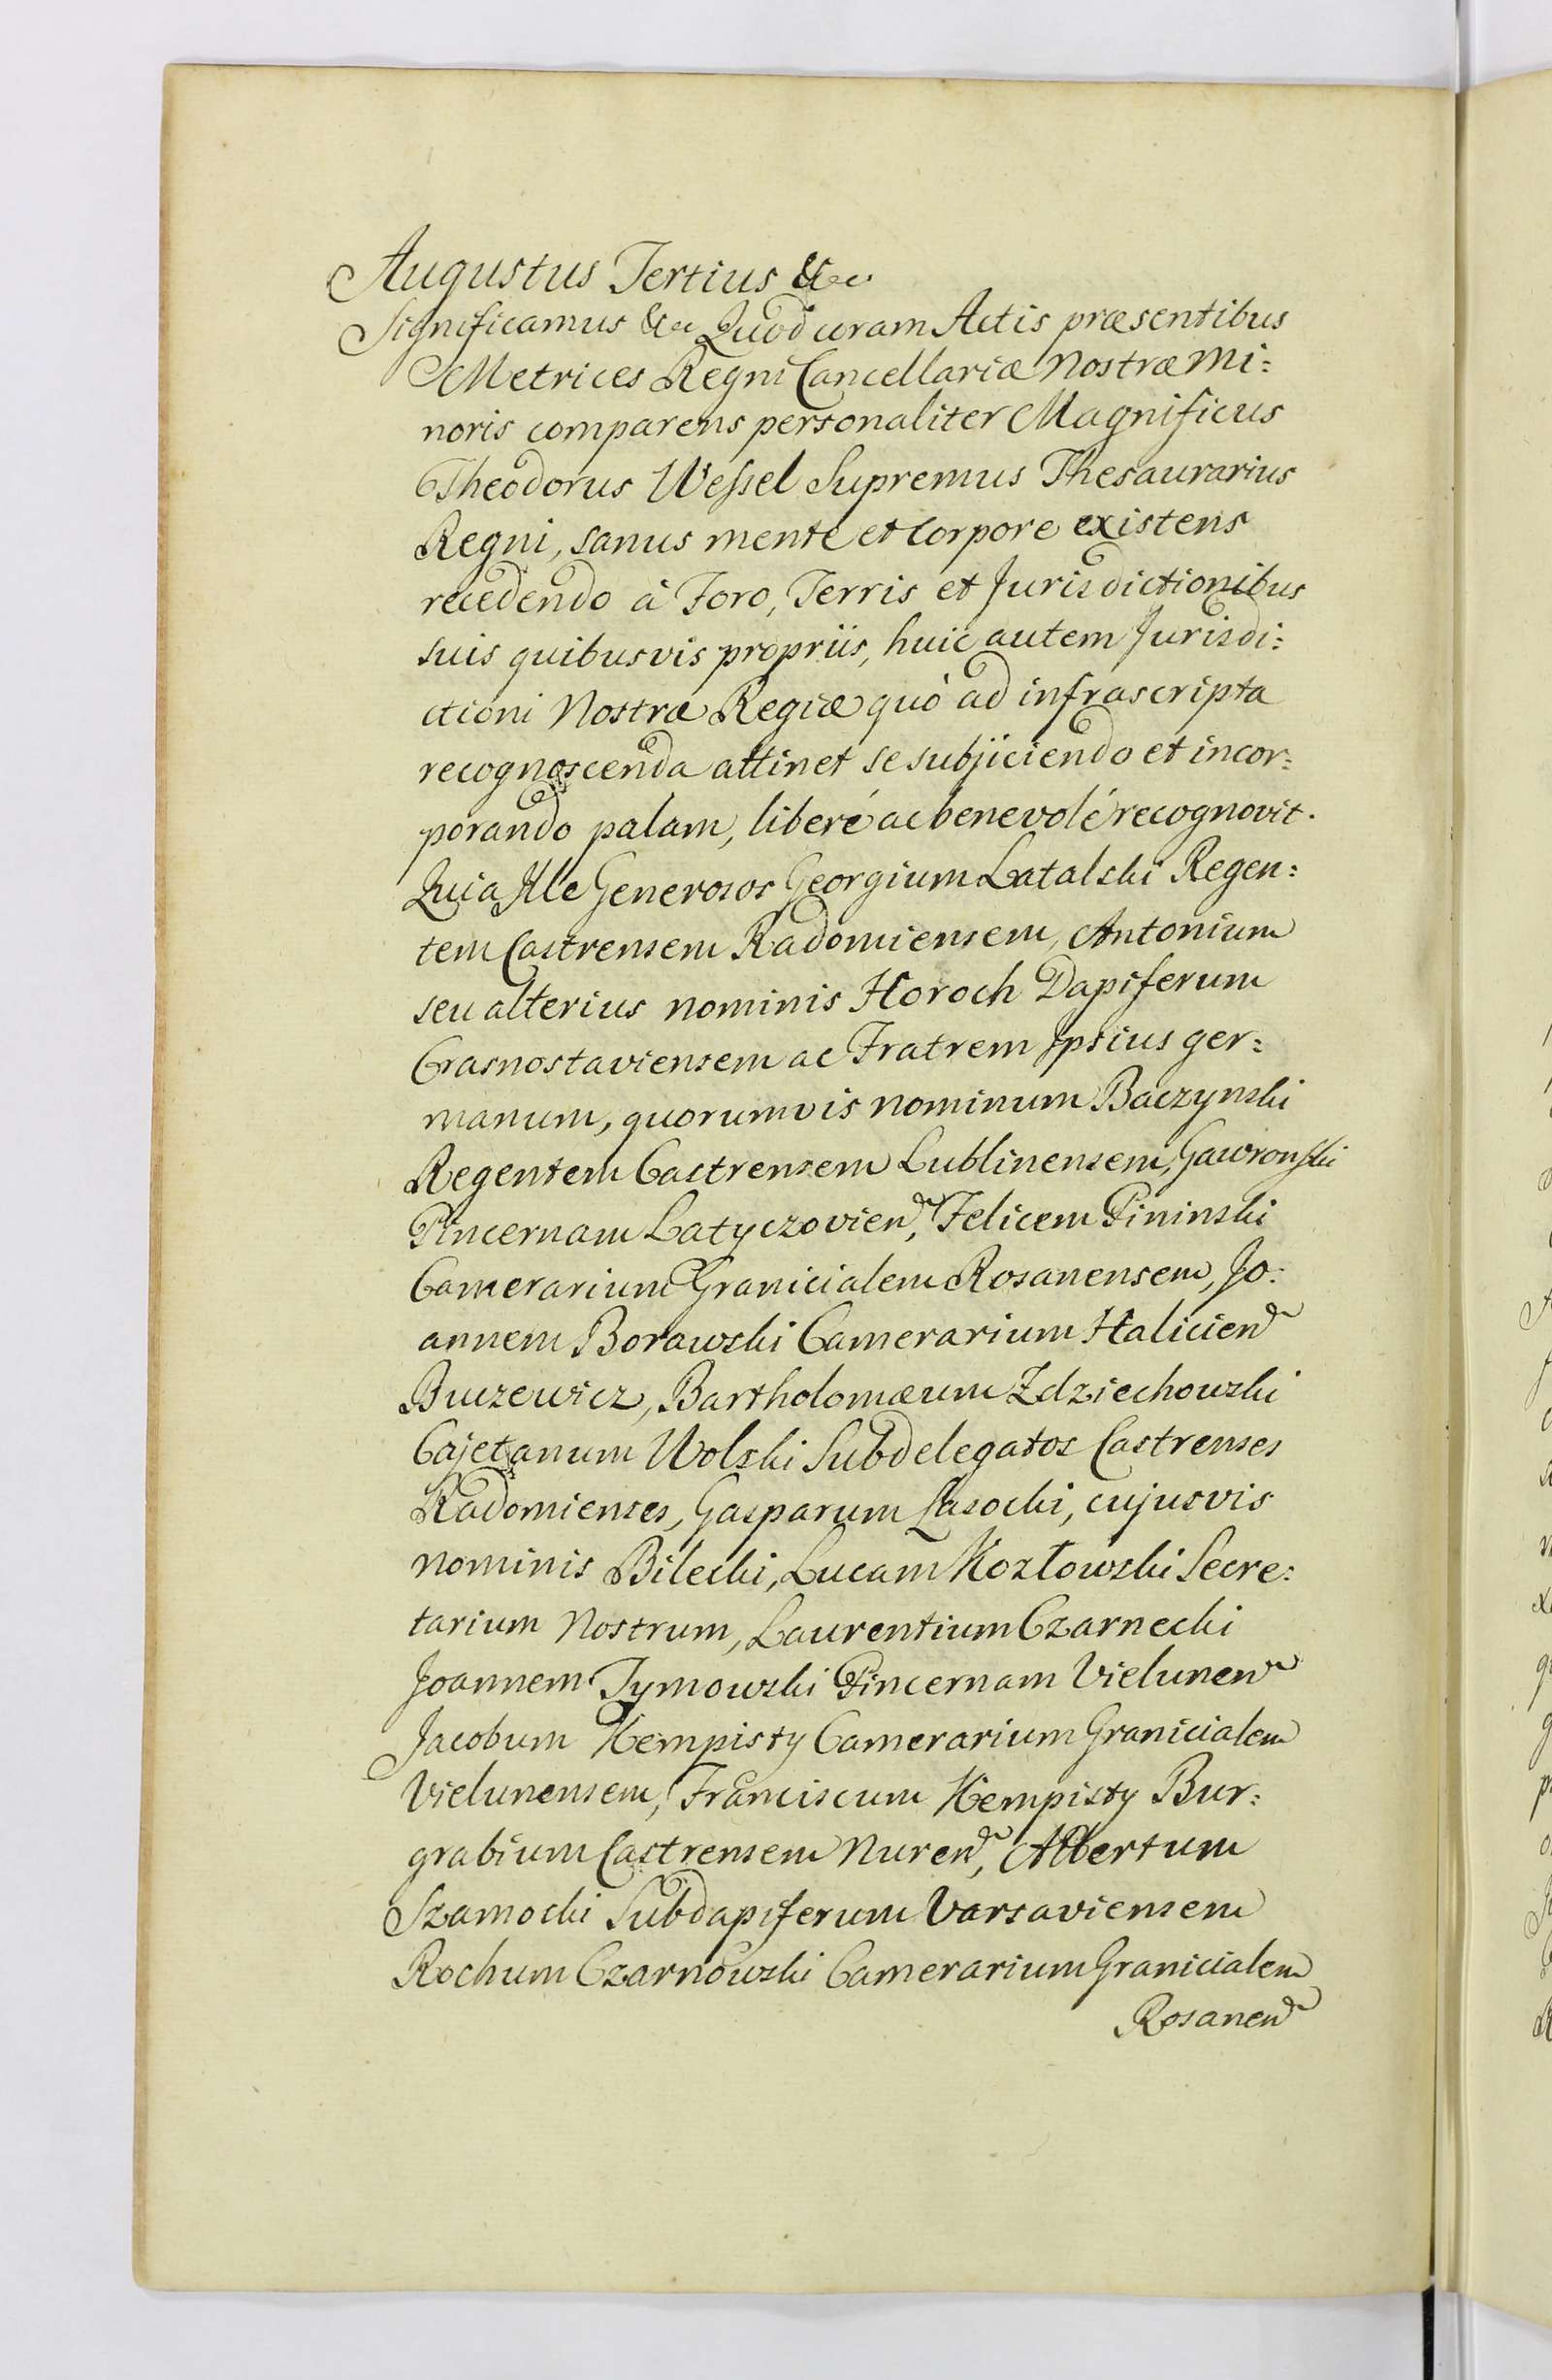 Augustus Tertius &c
Significamus &c Quod coram Actis præsentibus
Metrices Regni Cancellariæ Nostræ Mi:
noris comparens personaliter Magnificus
Theodorus Wessel Supremus Thesaurarius
Regni, sanus mente et corpore existens
recedendo à Foro, Terris et Jurisdictionibus
suis quibusvis propriis, huic autem Jurisdi:
ctioni Nostræ Regiæ quò ad infrascripta
recognoscenda attinet se subjiciendo et incor:
porando palam, liberé ac benevolé recognovit.
Quia Ille Generosos Georgium Latalski Regen:
tem Castrensem Radomiensem, Antonium
seu alterius nominis Horoch Dapiferum
Crasnostaviensem ac Fratrem Ipsius ger:
manum, quorumvis nominum Baczynski
Regentem Castrensem Lublinensem, Gawronski
Pincernam Latyczovien, Felicem Pininski
Camerarium Granicialem Rosanensem, Jo:
annem Borawski Camerarium Halicien
Buczewicz, Bartholomæum Zdziechowski
Cajetanum Wolski Subdelegatos Castrenses
Radomienses, Gasparum Lasocki, cujusvis
nominis Bilecki, Lucam Kozłowski Secre:
tarium Nostrum, Laurentium Czarnecki
Joannem Tymowski Pincernam Vielunen
Jacobum Kempisty Camerarium Granicialem
Vielunensem, Franciscum Kempisty Bur:
grabium Castrensem Nuren, Albertum
Szamocki Subdapiferum Varsaviensem
Rochum Czarnowski Camerarium Granicialem
Rosanen